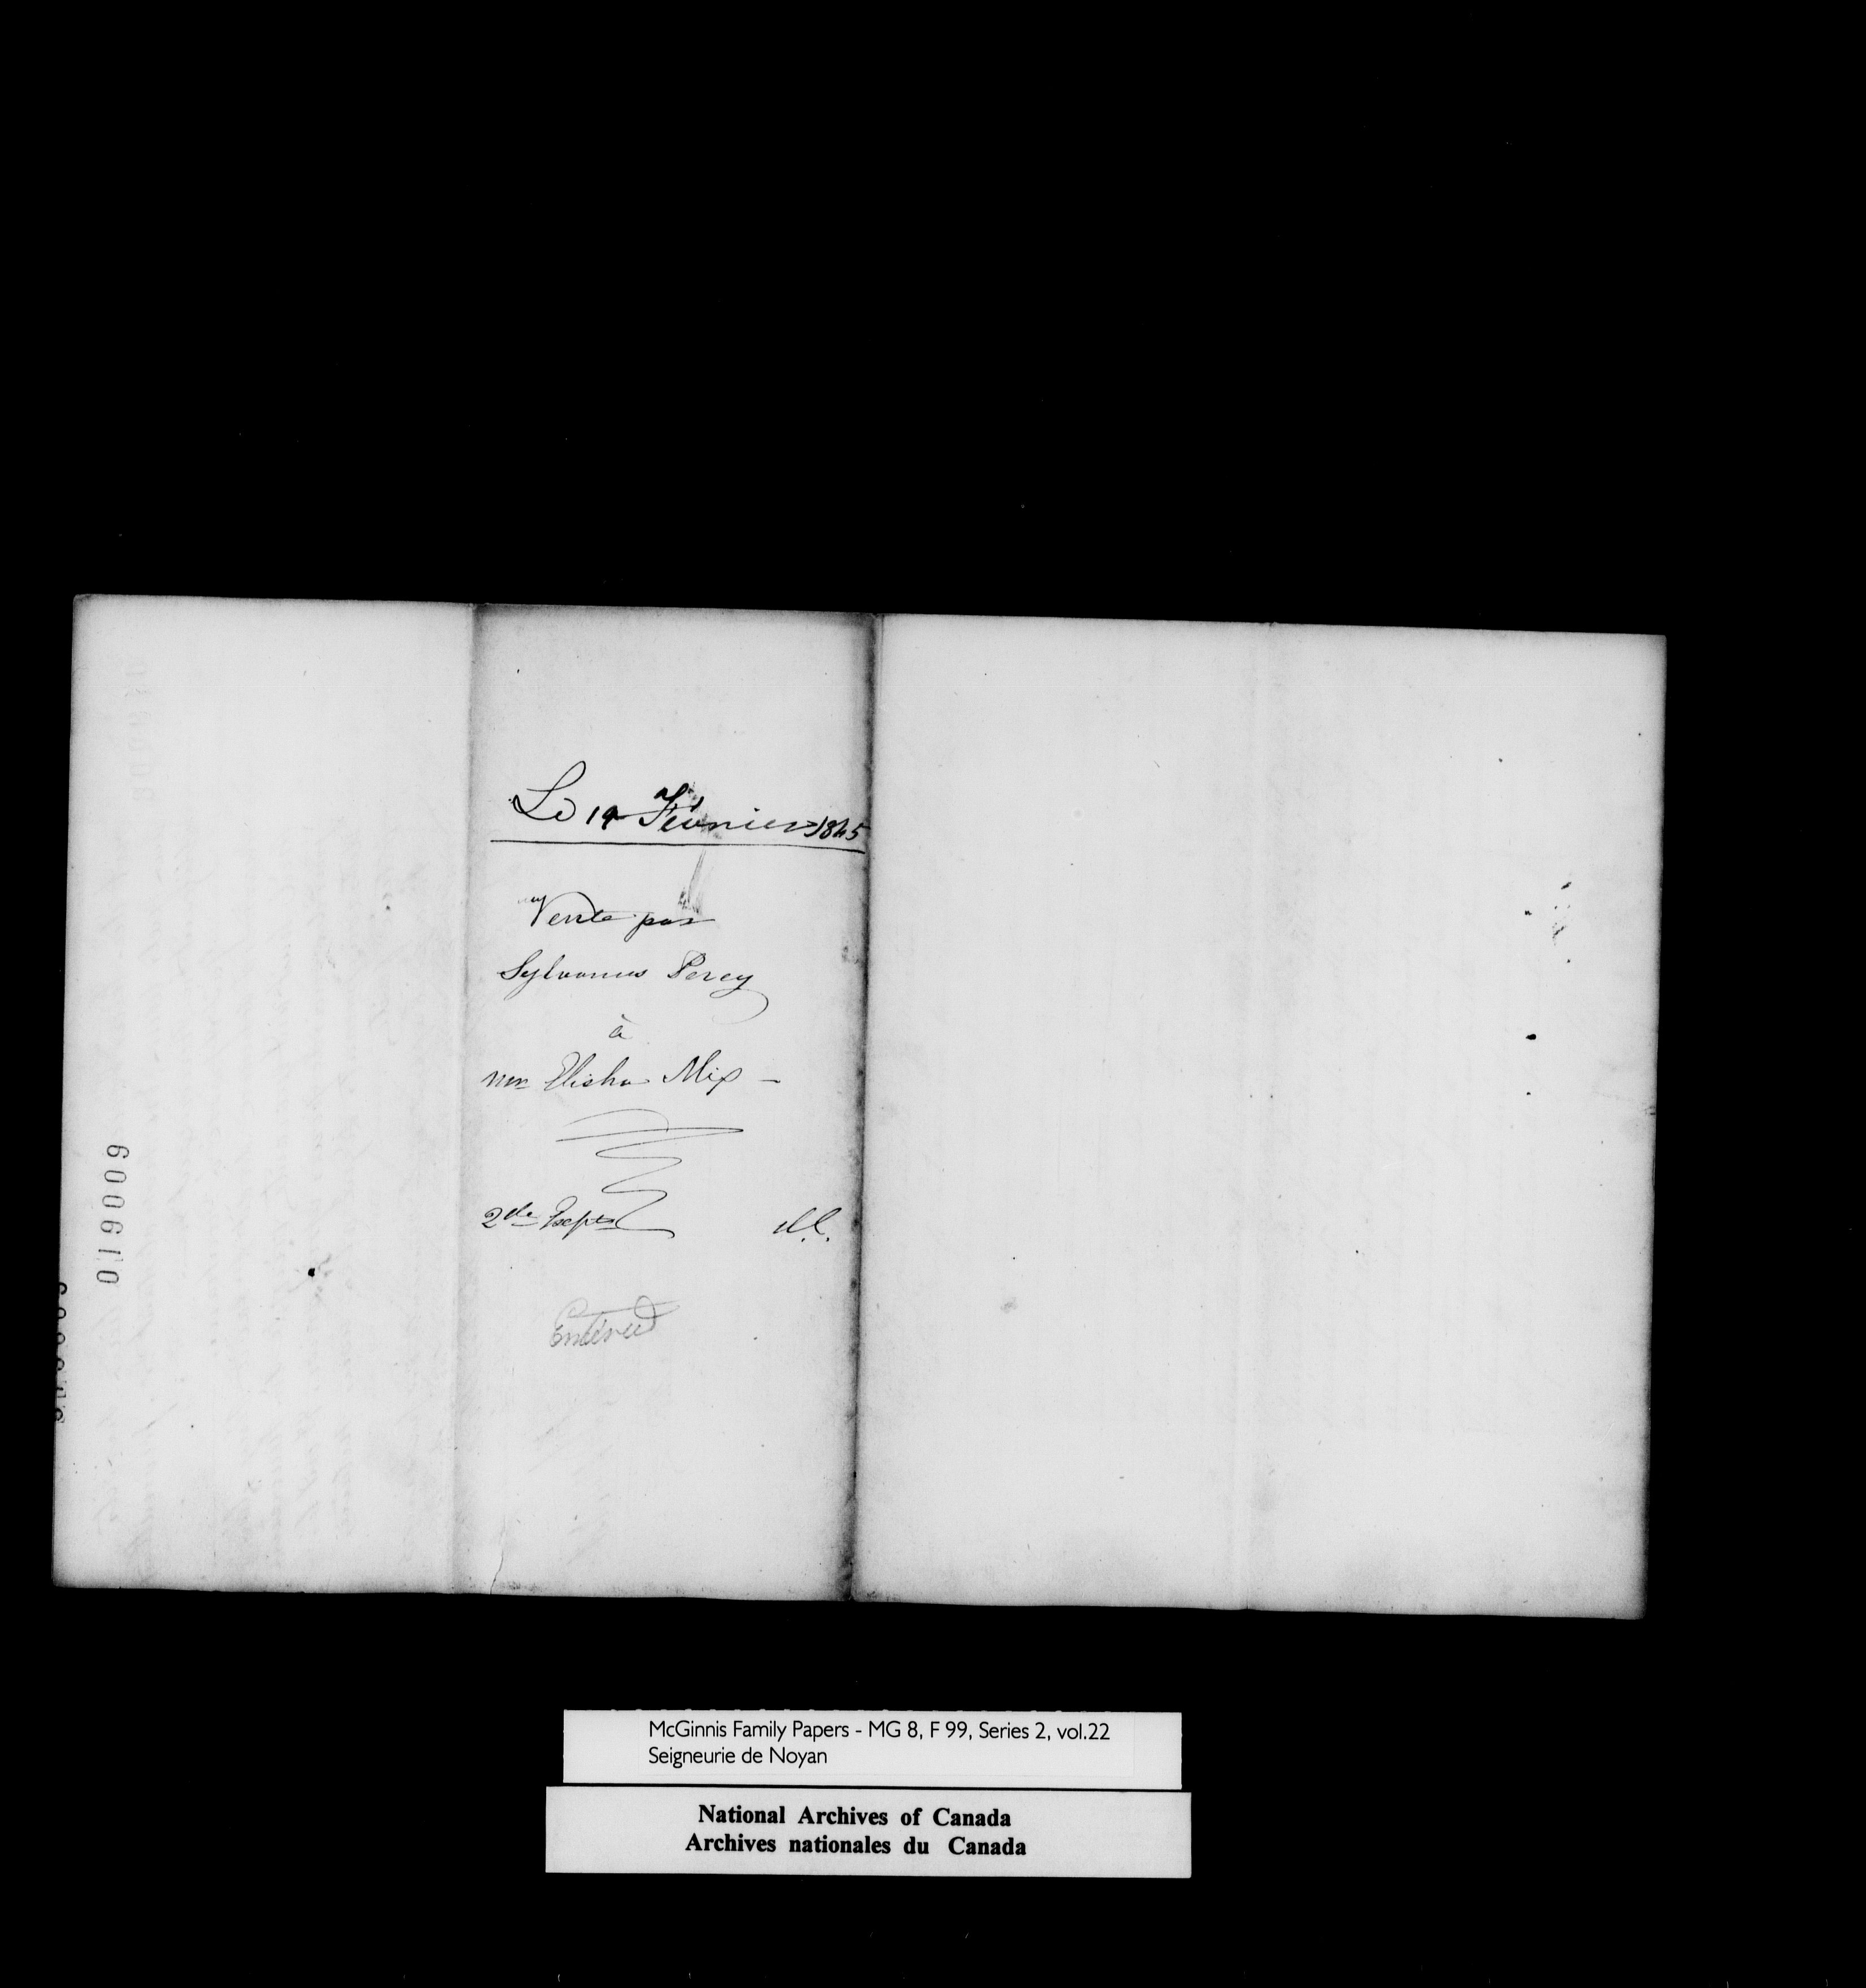 Le 19 Février 1845
Vente par
Sylvanus Percy
à
Mr Elisha Mix -
2de Expn
Entered
019009
McGinnis Family Papers - MG 8, F 99, Series 2, vol.22
Seigneurie de Noyan
National Archives of Canada
Archives nationales du Canada